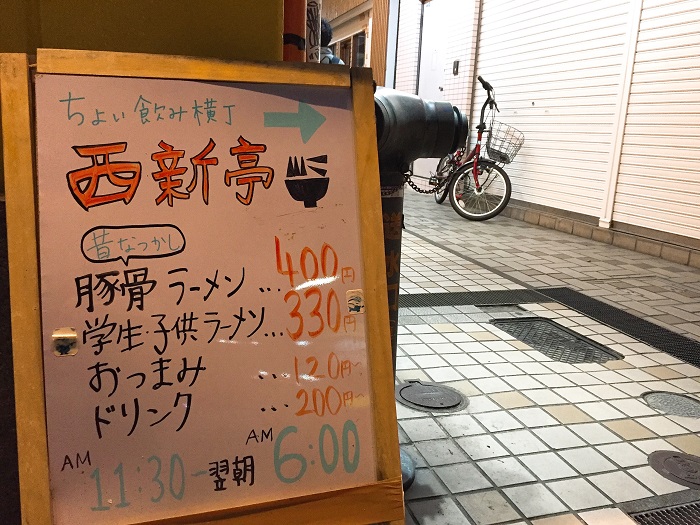 ちょい飲み横丁 →
西新亭
昔なつかし
豚骨ラーメン…400円
学生・子供ラーメン…330円
おつまみ …120円〜
ドリンク …200円〜
AM 11:30-翌朝 AM 6:00